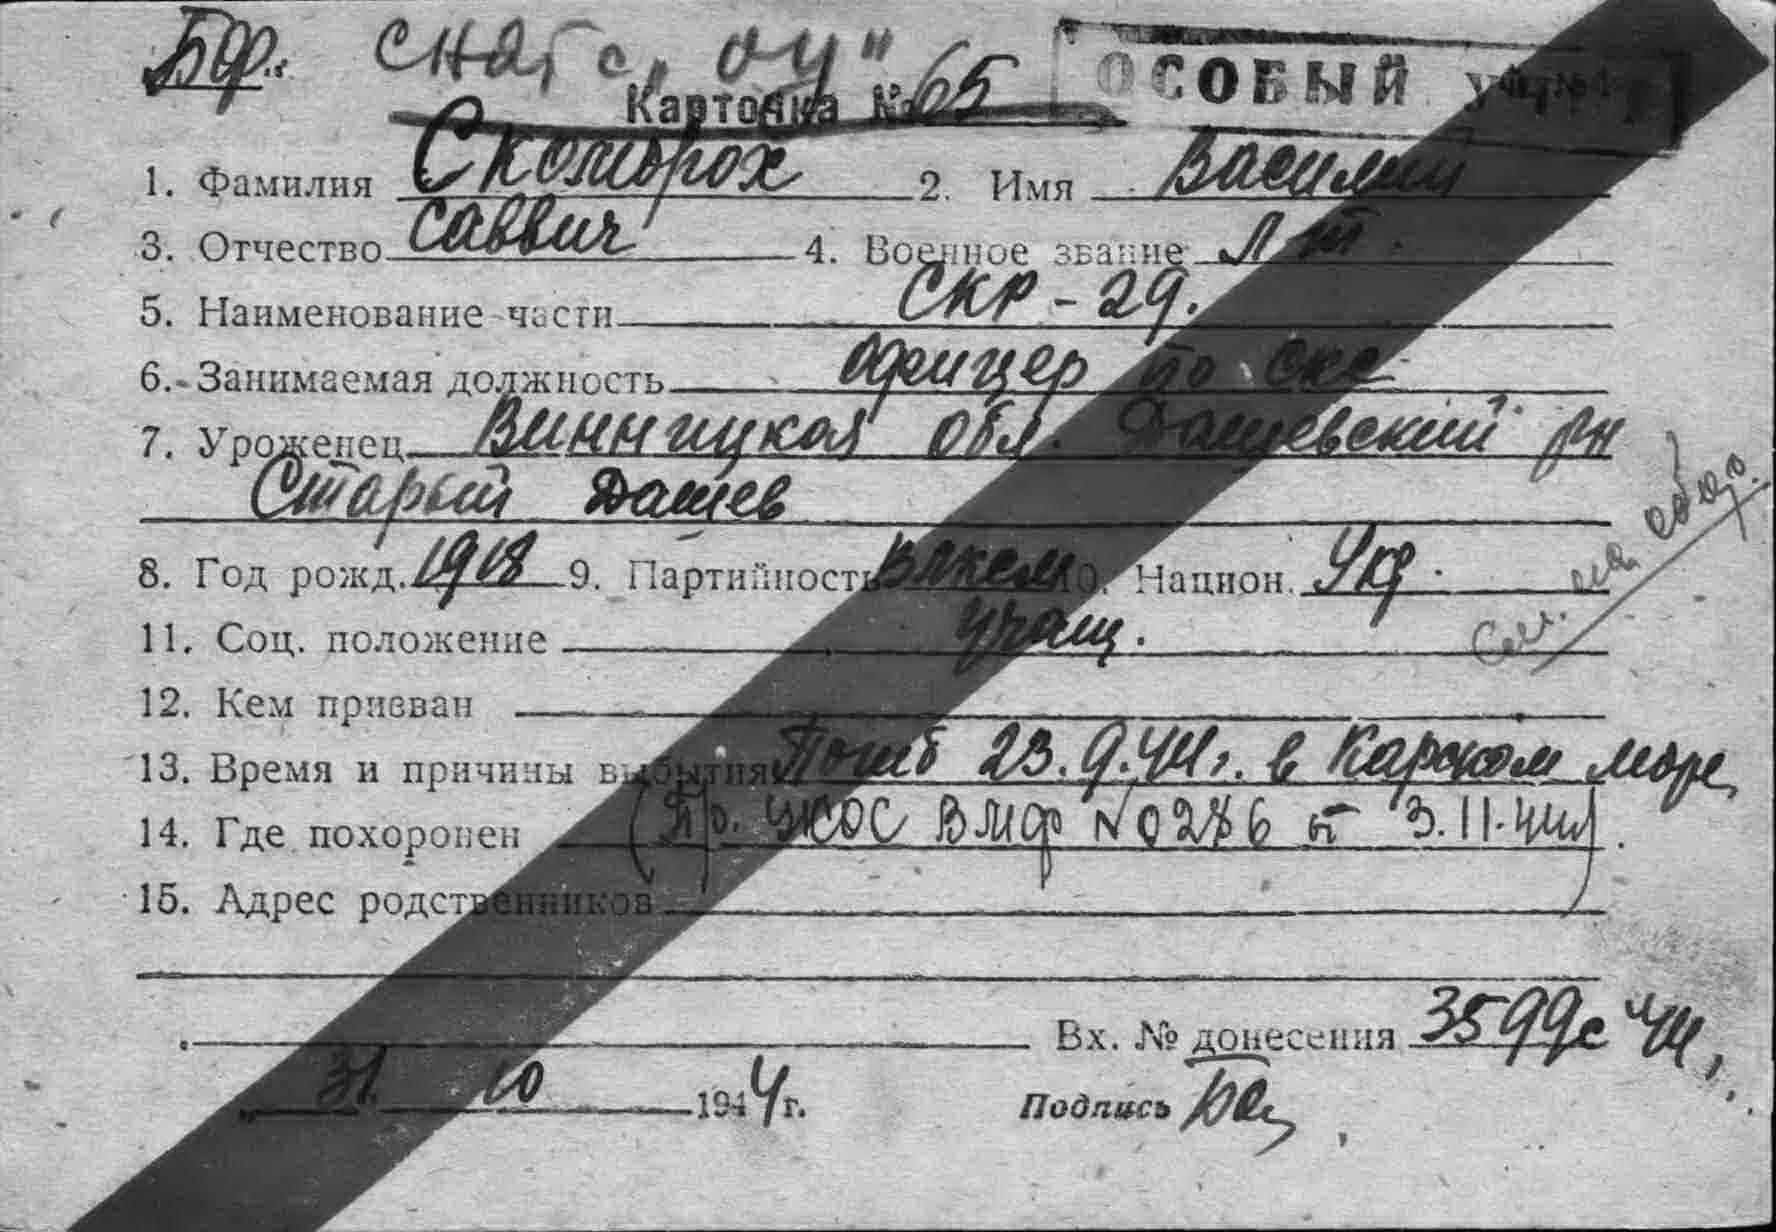 Бф. снят с „оу"
Карточка № 65 ОСОБЫЙ УЧЕТ
1. Фамилия Скоморох 2. Имя Василий
3. Отчество Саввич 4. Военное звание Л-т.
5. Наименование части СКР-29.
6. Занимаемая должность офицер по СКС
7. Уроженец Винницкая обл. Дашевский рн
Старый Дашев
8. Год рожд. 1918 9. Партийность ВЛКСМ 10. Национ. Укр.
11. Соц. положение учащ.
См. на обор.
12. Кем призван
13. Время и причины выбытия Погиб 23.9.44г. в Карском море
14. Где похоронен (Пр. УКОС ВМФ №0286 от 3.11.44г).
15. Адрес родственников
Вх. № донесения 3599с 44г.
31 10 1944г. Подпись